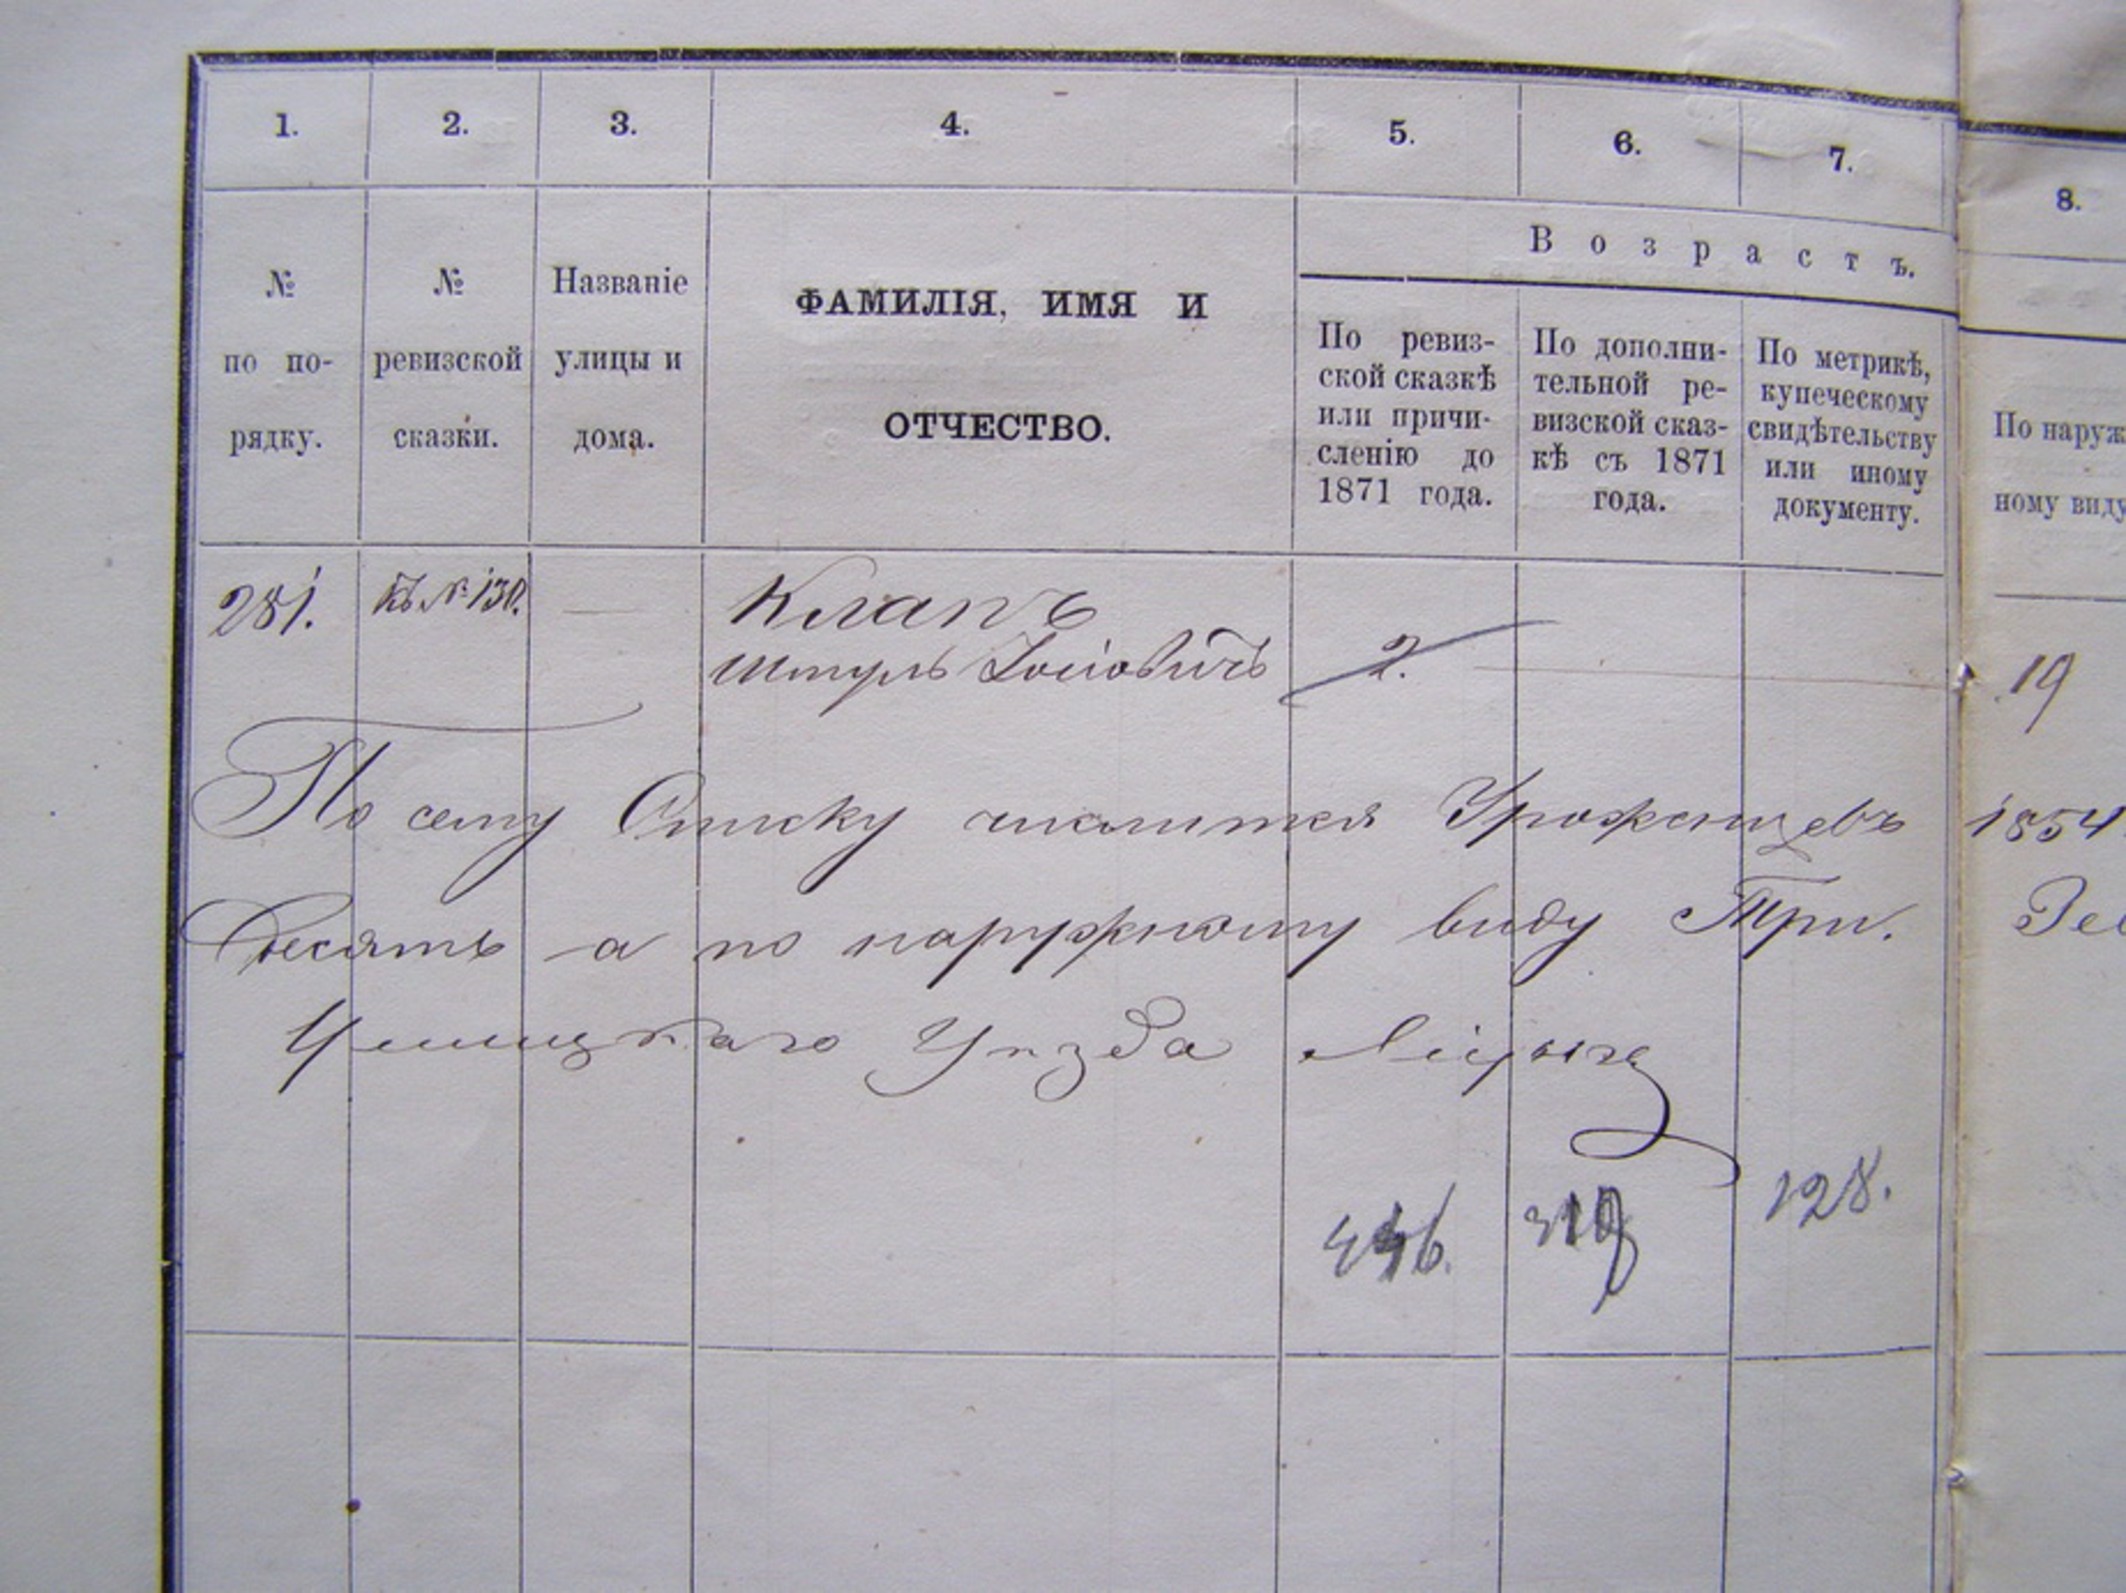 1. 2. 3. 4. 5. 6. 7. 8.
В о з р а с т ъ.
№
по по-
рядку.
№
ревизской
сказки.
Названіе
улицы и
дома.
ФАМИЛІЯ, ИМЯ И
ОТЧЕСТВО.
По ревиз-
ской сказкѣ
или причи-
сленію до
1871 года.
По дополни-
тельной ре-
визской сказ-
кѣ съ 1871
года.
По метрикѣ,
купеческому
свидѣтельству
или иному
документу.
По наруж
ному виду
281. Къ № 130. — Клапъ
Іосіовичъ 2. 19
По сему Списку числится Урожеицевъ 1854
десять а по наружному виду Три.
Уѣзда
128.